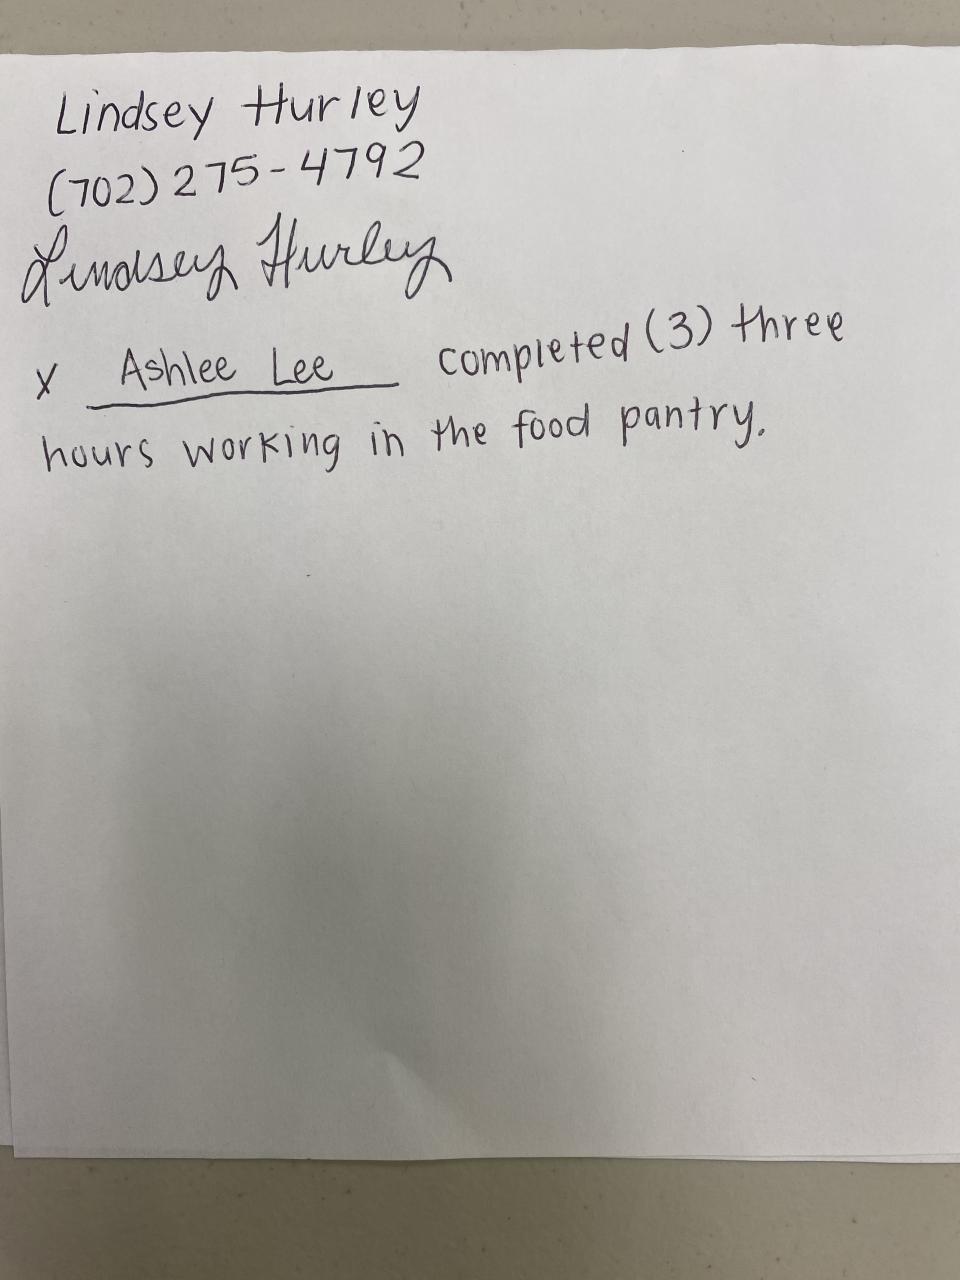 Lindsey Hurley
(702) 275-4792
Lindsey Hurley
x Ashlee Lee completed (3) three
hours working in the food pantry.